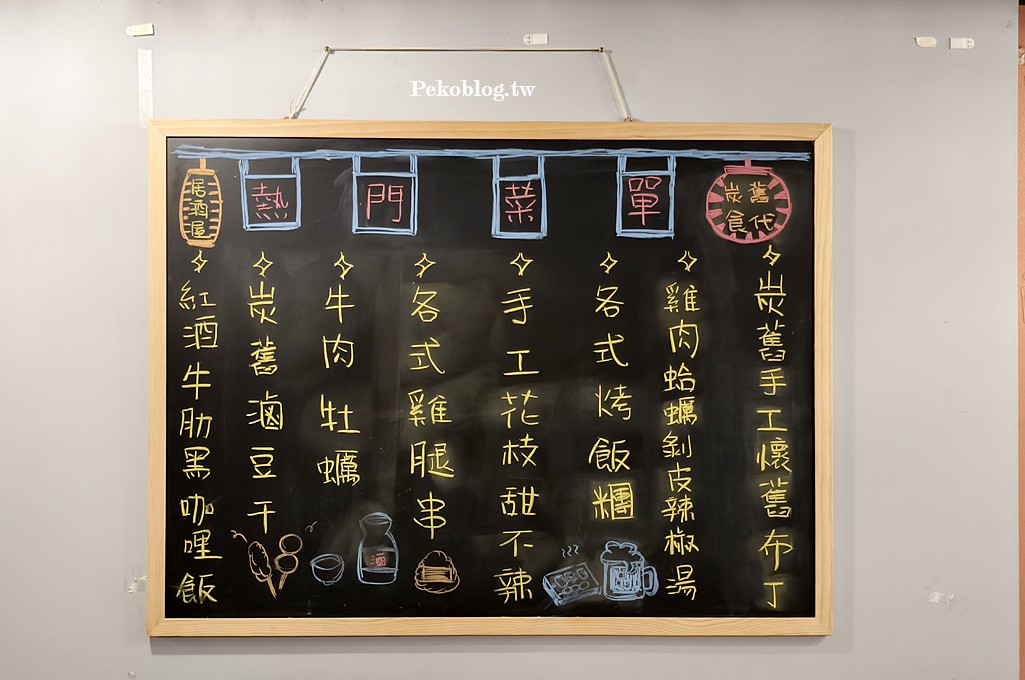 Pekoblog.tw
熱門菜單
炭舊食代
居酒屋
炭舊手工懷舊布丁
雞肉蛤蠣剝皮辣椒湯
各式烤飯糰
手工花枝甜不辣
各式雞腿串
牛肉牡蠣
炭舊滷豆干
紅酒牛肋黑咖哩飯
酒